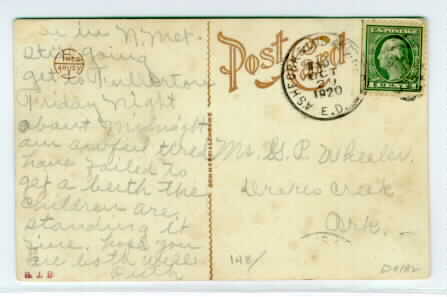 are in N. Mex.
still going
get to Fullerton
Friday Night
about Midnight
am awful tired
have failed to
get a berth the
children are
standing it
fine. hope you
are both well
Ruth
Post Card
ASHFORK
OCT
1920
E.D.
U.S. POSTAGE
1 CENT 1
Mr. G. P. Wheeler.
Drakes Creek
Ark.
148/